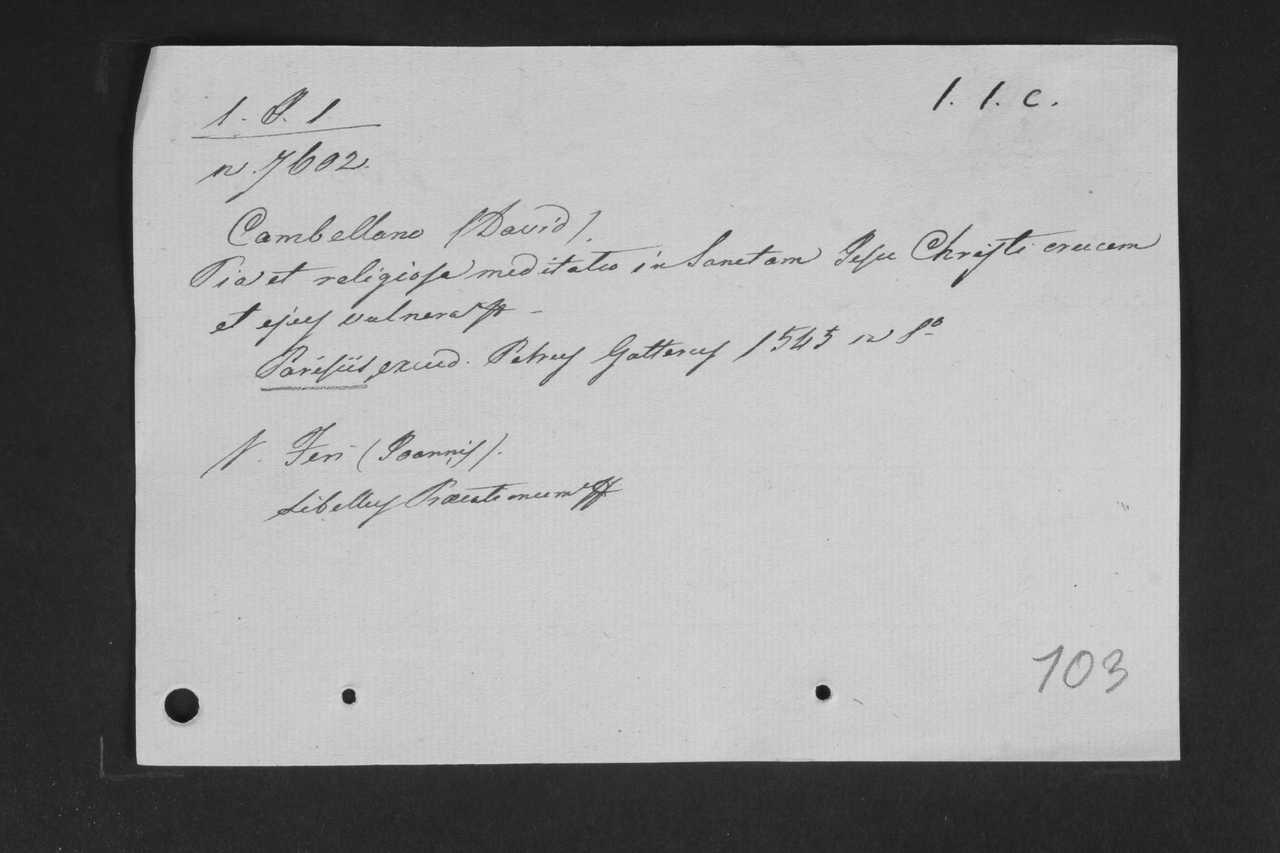 1. P. 1
1. 1. c.
n. 7602.
Cambellano (David).
Pia et religiosa meditatio in Sanctam Jesu Christi crucem
et ejus vulnera
Parisiis, excud. Petrus Gatterus 1545 in 8º
V. Feri (Joannis).
Libellus Precationum
103